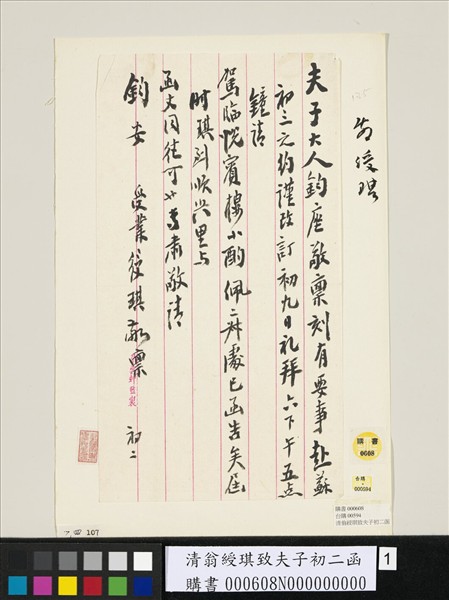 翁綬琪
夫子大人鈞座敬稟刻有要事赴蘇
初三之約謹改訂初九日礼拜六下午五点
鐘請
駕臨悅賓樓小酌佩二處已函告矣屆
時琪到順興里与
函丈同往可也專肅敬請
鈞安 受業綬琪敬稟 初二
購書
0608
000594
購書 000608
台購 00594
清翁綬琪致夫子初二函
107
清翁綬琪致夫子初二函
購書 000608N000000000
1